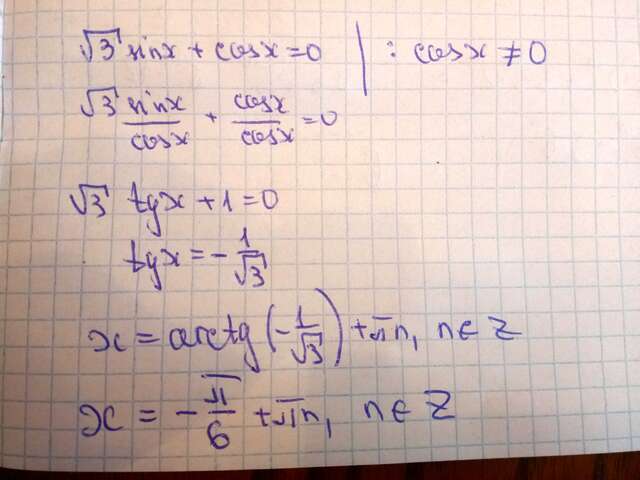 √3 sinx + cosx = 0 | : cosx ≠ 0
√3 sinx/cosx + cosx/cosx = 0
√3 tgx + 1 = 0
tgx = -1/√3
x = arctg(-1/√3) + πn, n∈Z
x = -π/6 + πn, n∈Z